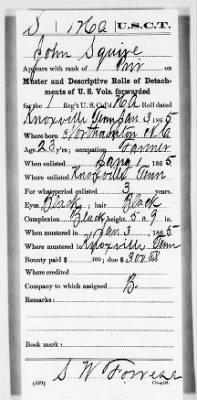 S | 1 HA | U.S.C.T.
John Squire
Appears with rank of Pvt on
Muster and Descriptive Rolls of Detach-
ments of U. S. Vols. forwarded
for the 1 Reg't U.S. Col'd HA Roll dated
Knoxville Tenn Jan 3, 1865
Where born Northampton N Ca
Age 23 y'rs; occupation Farmer
When enlisted Jany 1, 1865
Where enlisted Knoxville Tenn
For what period enlisted 3 years.
Eyes Black; hair Black
Complexion Black; height 5 ft. 9 in.
When mustered in Jan 3, 1865
Where mustered in Knoxville Tenn
Bounty paid $ 100; due $ 300 100
Where credited
Company to which assigned B.
Remarks:
Book mark:
S W Forrese
(339) Copyist.